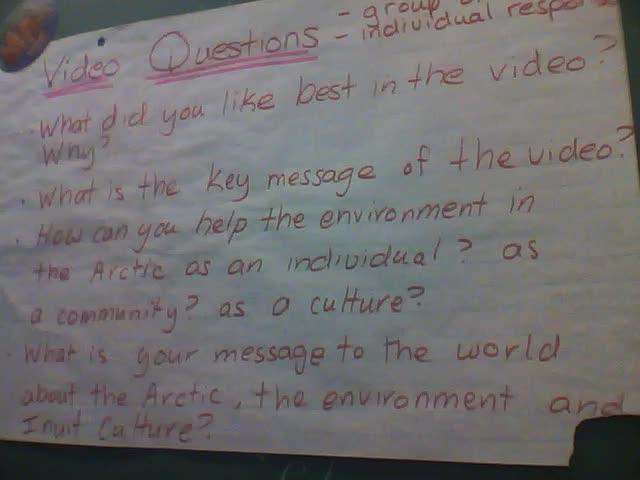 - group
Video Questions - individual
· What did you like best in the video?
Why?
· What is the key message of the video?
· How can you help the environment in
the Arctic as an individual? as
a community? as a culture?
· What is your message to the world
about the Arctic, the environment and
Inuit Culture?